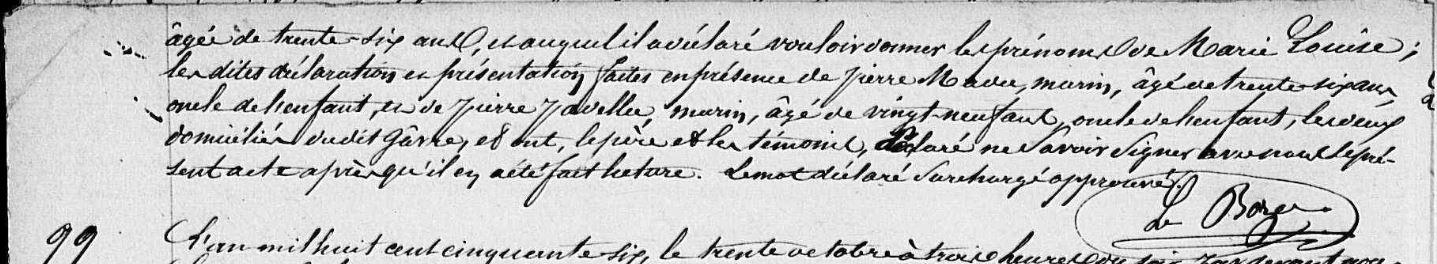 âgée de trente-six ans, et auquel il a déclaré vouloir donner les prénoms de Marie Louise;
les dites déclaration et présentation faites en présence de Pierre Madec, marin, âgé de trente six ans,
oncle de l'enfant, et de Pierre Javelle, marin, âgé de vingt-neuf ans, oncle de l'enfant, les deux
domiciliés du dit Gâvre, et ont, le père et les témoins, déclaré ne savoir signer avec nous le pré-
sent acte après qu'il en a été fait lecture. Le mot déclaré surchargé approuvé.
Le Borgne
99 L'an mil huit cent cinquante six, le trente octobre à trois heures du soir, par devant nous